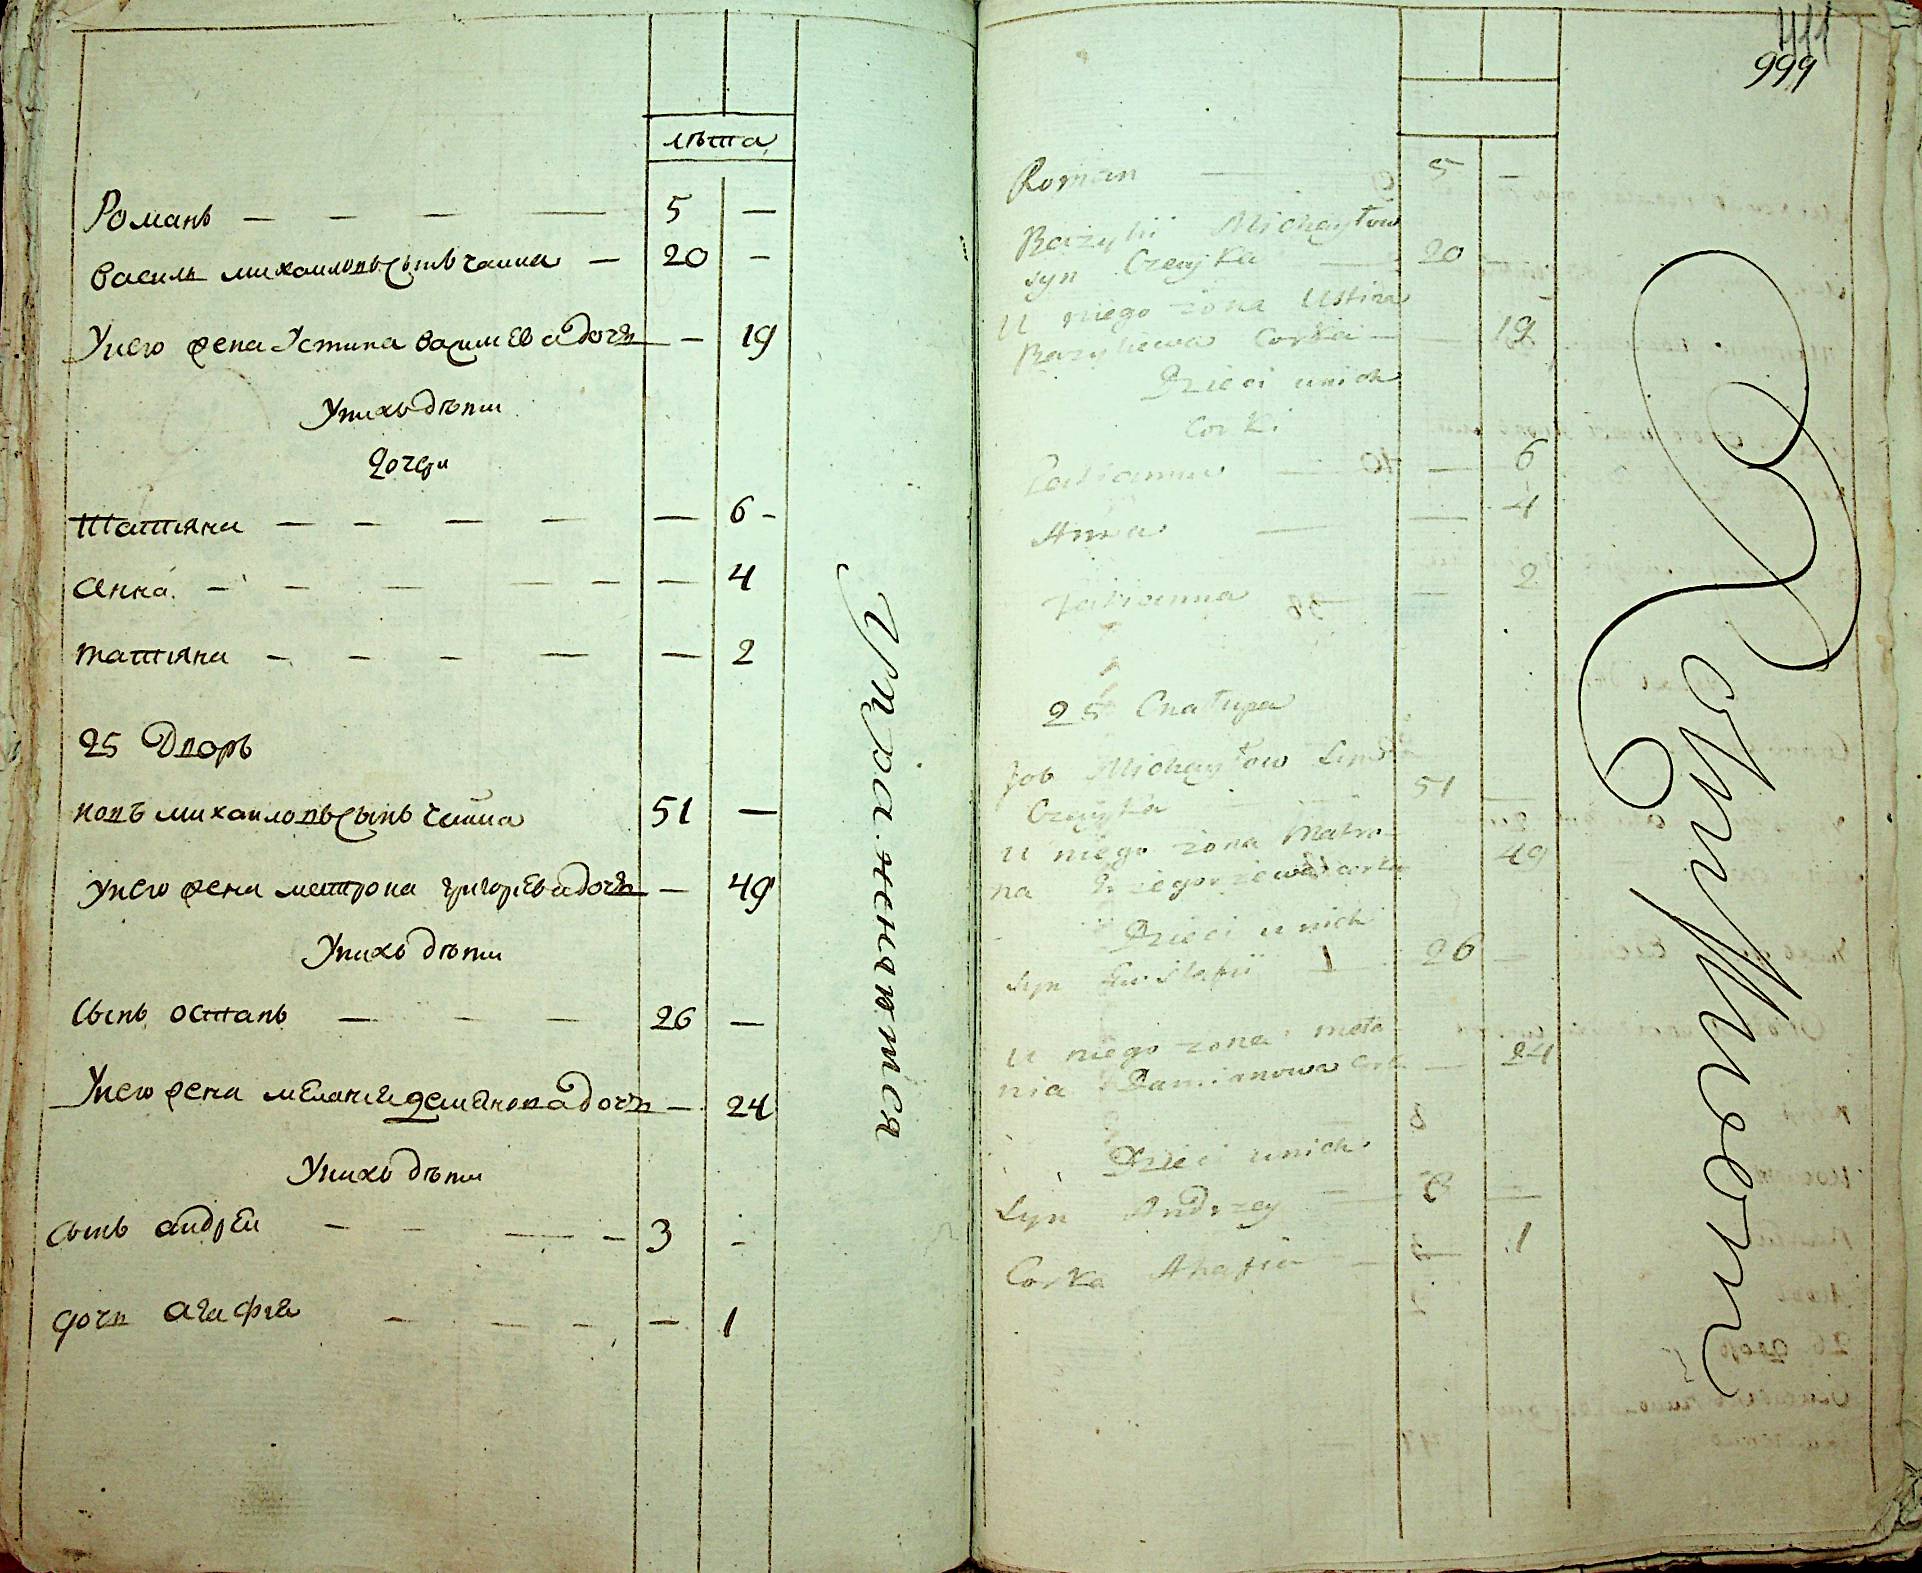 лѣта
Романъ — — — — 5 —
Василь михаиловъ сынъ чаика — 20 —
Унего жена Устина василева дочь — — 19
Унихъ дѣти
дочери
татіяна — — — — — 6 -
анна — — — — — — 4
татіяна — — — — — 2
25 Дворъ
иовъ михаиловъ сынъ чаика 51 —
унего жена матрона григорева дочь — 49
Унихъ дѣти
сынъ остапъ — — — 26 —
Унего жена меланія демянова дочь — 24
Унихъ дѣти
сынъ андрей — — — — 3 -
дочь агафія — — — — 1
411
999
Roman — 5 —
Bazylii Michayłow
syn Czayka — 20 —
U niego żona Ustina
Bazylewa Corka — — 19
Dzieci unich
Corki
Tatianna — — 6
Anna — — 4
Tatianna — — 2
25 Chałupa
Job Michayłow
Czayka 51 —
U niego żona Matro-
na Grzegorzewa corka 49
Dzieci unich
Syn — 26 —
U niego żona mela
nia Damianowa — 24
Dzieci unich
Syn Andrzey — 3 —
Corka Ahafia — — 1